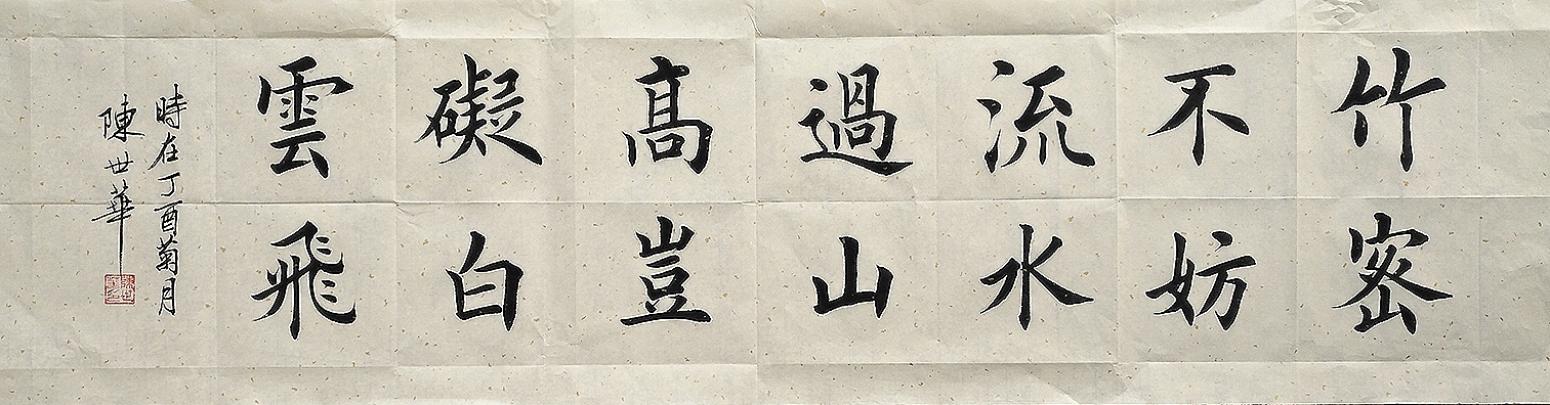 竹密
不妨
流水
過山
高豈
礙白
雲飛
時在丁酉菊月
陳世華